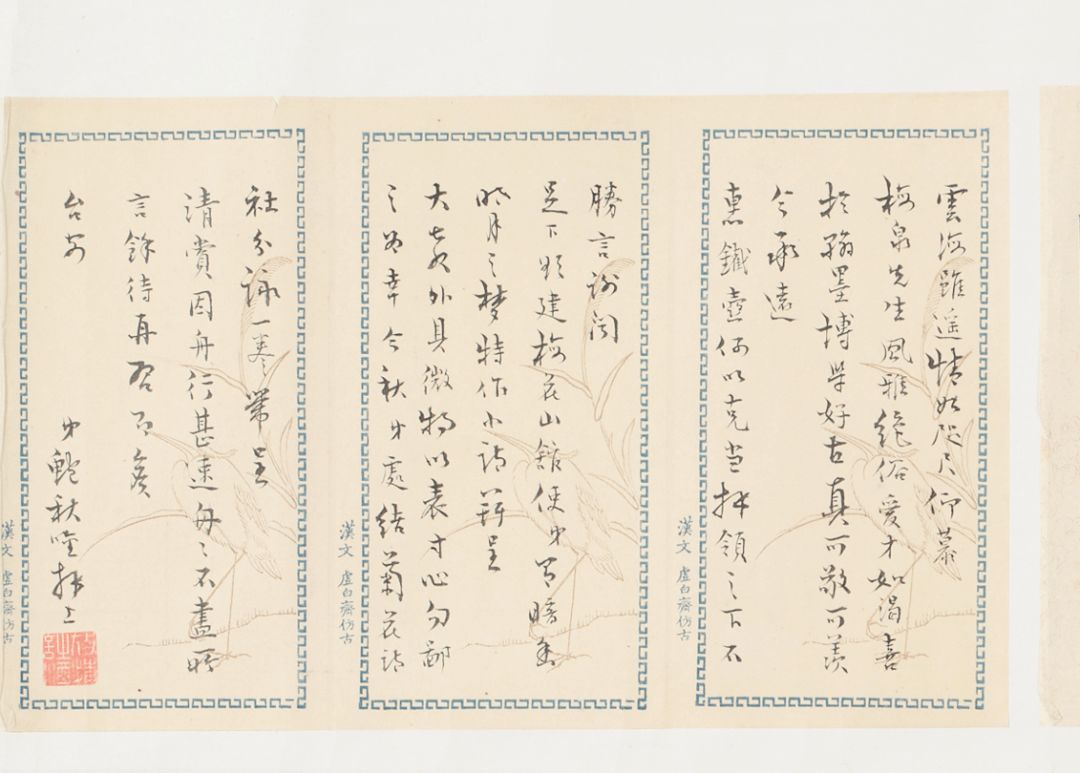 雲海雖遙情如咫尺仰慕
梅泉先生風雅絶俗愛才如渴喜
於翰墨博学好古真可敬可羡
今承遠
惠鐵壺何以克当拜領之下不
漢文 虚白齋仿古
勝言謝聞
足下欲建梅花山舘使弟有暗香
明月之梦特作小詩并呈
大教外具微物以表寸心勿鄙
之为幸今秋弟處结菊花詩
漢文 虚白齋仿古
社分詠一卷帶呈
清賞因舟行甚速匆匆不盡所
言餘待再啓即候
台安
弟鮑秋唫拜上
漢文 虚白齋仿古